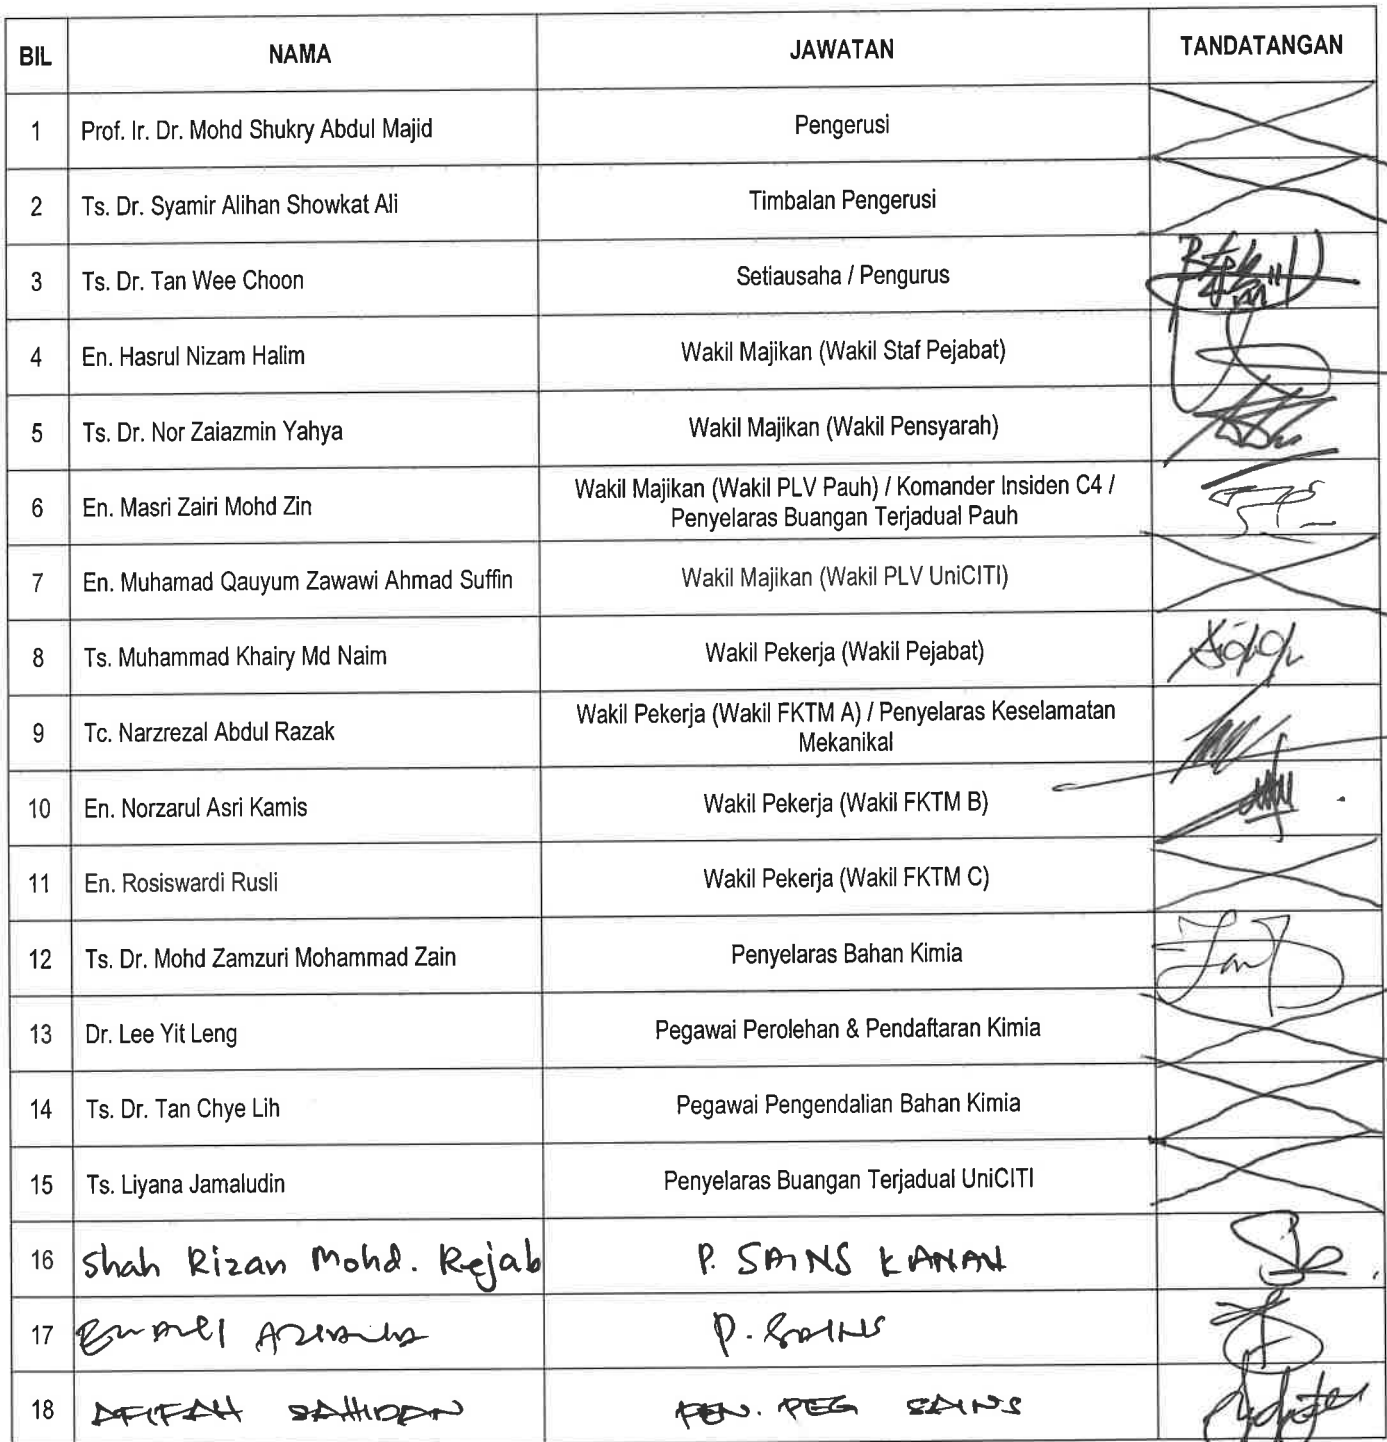 BIL NAMA JAWATAN TANDATANGAN
1 Prof. Ir. Dr. Mohd Shukry Abdul Majid Pengerusi
2 Ts. Dr. Syamir Alihan Showkat Ali Timbalan Pengerusi
3 Ts. Dr. Tan Wee Choon Setiausaha / Pengurus
4 En. Hasrul Nizam Halim Wakil Majikan (Wakil Staf Pejabat)
5 Ts. Dr. Nor Zaiazmin Yahya Wakil Majikan (Wakil Pensyarah)
6 En. Masri Zairi Mohd Zin Wakil Majikan (Wakil PLV Pauh) / Komander Insiden C4 /
Penyelaras Buangan Terjadual Pauh
7 En. Muhamad Qauyum Zawawi Ahmad Suffin Wakil Majikan (Wakil PLV UniCITI)
8 Ts. Muhammad Khairy Md Naim Wakil Pekerja (Wakil Pejabat)
9 Tc. Narzrezal Abdul Razak Wakil Pekerja (Wakil FKTM A) / Penyelaras Keselamatan
Mekanikal
10 En. Norzarul Asri Kamis Wakil Pekerja (Wakil FKTM B)
11 En. Rosiswardi Rusli Wakil Pekerja (Wakil FKTM C)
12 Ts. Dr. Mohd Zamzuri Mohammad Zain Penyelaras Bahan Kimia
13 Dr. Lee Yit Leng Pegawai Perolehan & Pendaftaran Kimia
14 Ts. Dr. Tan Chye Lih Pegawai Pengendalian Bahan Kimia
15 Ts. Liyana Jamaludin Penyelaras Buangan Terjadual UniCITI
16 Shah Rizan Mohd. Rejab P. SAINS KANAN
17 P. SAINS
18 AFIFAH SAHIDAN PEN. PEG SAINS